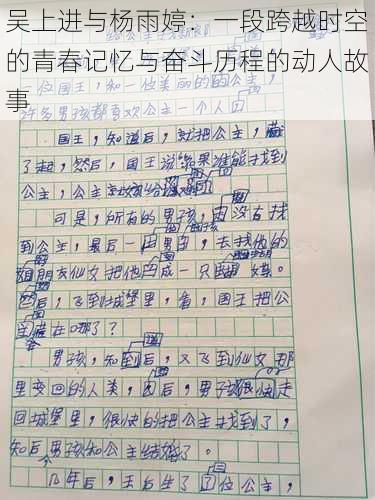 吴上进与杨雨婷：一段跨越时空
的青春记忆与奋斗历程的动人故
事
位国王，和一位美丽的的公主，
许多男孩都喜欢公主一个人
国王，知道后，就把公主，藏
了起，然后，国王说如果谁能找到
公主，公主
可是，所有的男孩，由没有找
到公主，最后一 男 ，去找他的
朋友仙女把他 成一只 蝶。
后，飞到城堡里，看，国王把公
在哪了？
男孩，知到后，又飞到仙女那
里变回的人类， 后，男孩很快走
回城堡里，很快的把公主找到了，
知后男孩和公主结婚了。
几年后，王后生了 位公主，